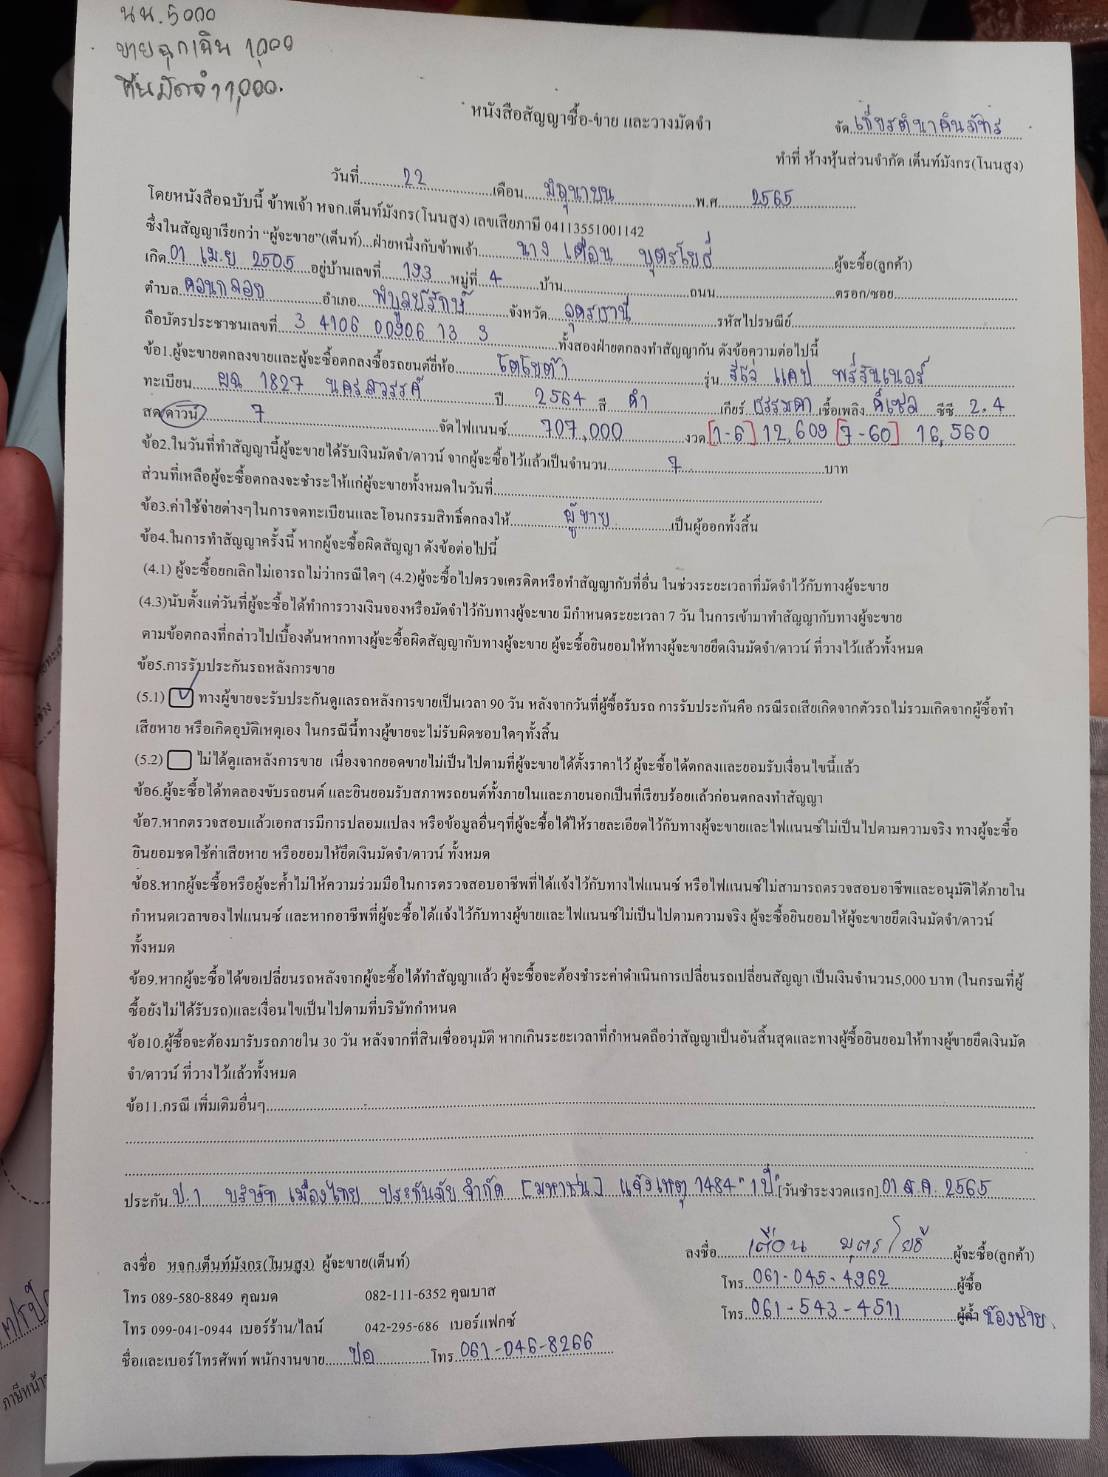 นน.5000
ขายฉุกเฉิน 1,000
คืนมัดจำ 1,000.
หนังสือสัญญาซื้อ-ขาย และวางมัดจำ
จัด.เกียรตินาคินภัทร
ทำที่ ห้างหุ้นส่วนจำกัด เต็นท์มังกร(โนนสูง)
วันที่ 22 เดือน มิถุนายน พ.ศ. 2565
โดยหนังสือฉบับนี้ ข้าพเจ้า หจก.เต็นท์มังกร(โนนสูง) เลขเสียภาษี 04113551001142
ซึ่งในสัญญาเรียกว่า “ผู้จะขาย”(เต็นท์)...ฝ่ายหนึ่งกับข้าพเจ้า นาง เตือน บุตรโยธี ผู้จะซื้อ(ลูกค้า)
เกิด 01 เม.ย 2505 อยู่บ้านเลขที่ 193 หมู่ที่ 4 บ้าน ถนน ตรอก/ซอย
ตำบล ดอนกลอย อำเภอ พิบูลย์รักษ์ จังหวัด อุดรธานี รหัสไปรษณีย์
ถือบัตรประชาชนเลขที่ 3 4106 00906 13 9 ทั้งสองฝ่ายตกลงทำสัญญากัน ดังข้อความต่อไปนี้
ข้อ1.ผู้จะขายตกลงขายและผู้จะซื้อตกลงซื้อรถยนต์ยี่ห้อ โตโยต้า รุ่น รีโว่ แคป พรีรันเนอร์
ทะเบียน ผฉ 1827 นครสวรรค์ ปี 2564 สี ดำ เกียร์ ธรรมดา เชื้อเพลิง ดีเซล ซีซี 2.4
สด/ดาวน์ 7 จัดไฟแนนซ์ 707,000 งวด [1-6] 12,609 [7-60] 16,560
ข้อ2.ในวันที่ทำสัญญานี้ผู้จะขายได้รับเงินมัดจำ/ดาวน์ จากผู้จะซื้อไว้แล้วเป็นจำนวน 7 บาท
ส่วนที่เหลือผู้จะซื้อตกลงจะชำระให้แก่ผู้จะขายทั้งหมดในวันที่
ข้อ3.ค่าใช้จ่ายต่างๆในการจดทะเบียนและโอนกรรมสิทธิ์ตกลงให้ ผู้ขาย เป็นผู้ออกทั้งสิ้น
ข้อ4.ในการทำสัญญาครั้งนี้ หากผู้จะซื้อผิดสัญญา ดังข้อต่อไปนี้
(4.1) ผู้จะซื้อยกเลิกไม่เอารถ ไม่ว่ากรณีใดๆ (4.2)ผู้จะซื้อไปตรวจเครดิตหรือทำสัญญากับที่อื่น ในช่วงระยะเวลาที่มัดจำไว้กับทางผู้จะขาย
(4.3)นับตั้งแต่วันที่ผู้จะซื้อได้ทำการวางเงินจองหรือมัดจำไว้กับทางผู้จะขาย มีกำหนดระยะเวลา 7 วัน ในการเข้ามาทำสัญญากับทางผู้จะขาย
ตามข้อตกลงที่กล่าวไปเบื้องต้นหากทางผู้จะซื้อผิดสัญญากับทางผู้จะขาย ผู้จะซื้อยินยอมให้ทางผู้จะขายยึดเงินมัดจำ/ดาวน์ ที่วางไว้แล้วทั้งหมด
ข้อ5.การรับประกันรถหลังการขาย
(5.1) ทางผู้ขายจะรับประกันดูแลรถหลังการขายเป็นเวลา 90 วัน หลังจากวันที่ผู้ซื้อรับรถ การรับประกันคือ กรณีรถเสียเกิดจากตัวรถ ไม่รวมเกิดจากผู้ซื้อทำ
เสียหาย หรือเกิดอุบัติเหตุเอง ในกรณีนี้ทางผู้ขายจะไม่รับผิดชอบใดๆทั้งสิ้น
(5.2) ไม่ได้ดูแลหลังการขาย เนื่องจากยอดขายไม่เป็นไปตามที่ผู้จะขายได้ตั้งราคาไว้ ผู้จะซื้อได้ตกลงและยอมรับเงื่อนไขนี้แล้ว
ข้อ6.ผู้จะซื้อได้ทดลองขับรถยนต์ และยินยอมรับสภาพรถยนต์ทั้งภายในและภายนอกเป็นที่เรียบร้อยแล้วก่อนตกลงทำสัญญา
ข้อ7.หากตรวจสอบแล้วเอกสารมีการปลอมแปลง หรือข้อมูลอื่นๆที่ผู้จะซื้อได้ให้รายละเอียดไว้กับทางผู้จะขายและไฟแนนซ์ไม่เป็นไปตามความจริง ทางผู้จะซื้อ
ยินยอมชดใช้ค่าเสียหาย หรือยอมให้ยึดเงินมัดจำ/ดาวน์ ทั้งหมด
ข้อ8.หากผู้จะซื้อหรือผู้จะค้ำไม่ให้ความร่วมมือในการตรวจสอบอาชีพที่ได้แจ้งไว้กับทางไฟแนนซ์ หรือไฟแนนซ์ไม่สามารถตรวจสอบอาชีพและอนุมัติได้ภายใน
กำหนดเวลาของไฟแนนซ์ และหากอาชีพที่ผู้จะซื้อได้แจ้งไว้กับทางผู้ขายและไฟแนนซ์ไม่เป็นไปตามความจริง ผู้จะซื้อยินยอมให้ผู้จะขายยึดเงินมัดจำ/ดาวน์
ทั้งหมด
ข้อ9.หากผู้จะซื้อได้ขอเปลี่ยนรถหลังจากผู้จะซื้อได้ทำสัญญาแล้ว ผู้จะซื้อจะต้องชำระค่าดำเนินการเปลี่ยนรถเปลี่ยนสัญญา เป็นเงินจำนวน5,000 บาท (ในกรณีที่ผู้
ซื้อยังไม่ได้รับรถ)และเงื่อนไขเป็นไปตามที่บริษัทกำหนด
ข้อ10.ผู้ซื้อจะต้องมารับรถภายใน 30 วัน หลังจากที่สินเชื่ออนุมัติ หากเกินระยะเวลาที่กำหนดถือว่าสัญญาเป็นอันสิ้นสุดและทางผู้ซื้อยินยอมให้ทางผู้ขายยึดเงินมัด
จำ/ดาวน์ ที่วางไว้แล้วทั้งหมด
ข้อ11.กรณี เพิ่มเติมอื่นๆ
ประกัน ป.1 บริษัท เมืองไทย ประกันภัย จำกัด [มหาชน] แจ้งเหตุ 1484 "1 ปี" [วันชำระงวดแรก] 01 ส.ค. 2565
ลงชื่อ เตือน บุตรโยธี ผู้จะซื้อ(ลูกค้า)
ลงชื่อ หจก.เต็นท์มังกร(โนนสูง) ผู้จะขาย(เต็นท์)
โทร 061-045-4962 ผู้ซื้อ
โทร 089-580-8849 คุณมด 082-111-6352 คุณบาส
โทร 061-543-4511 ผู้ค้ำ น้องชาย.
โทร 099-041-0944 เบอร์ร้าน/ไลน์ 042-295-686 เบอร์แฟกซ์
ชื่อและเบอร์โทรศัพท์ พนักงานขาย ปอ โทร 061-046-8266